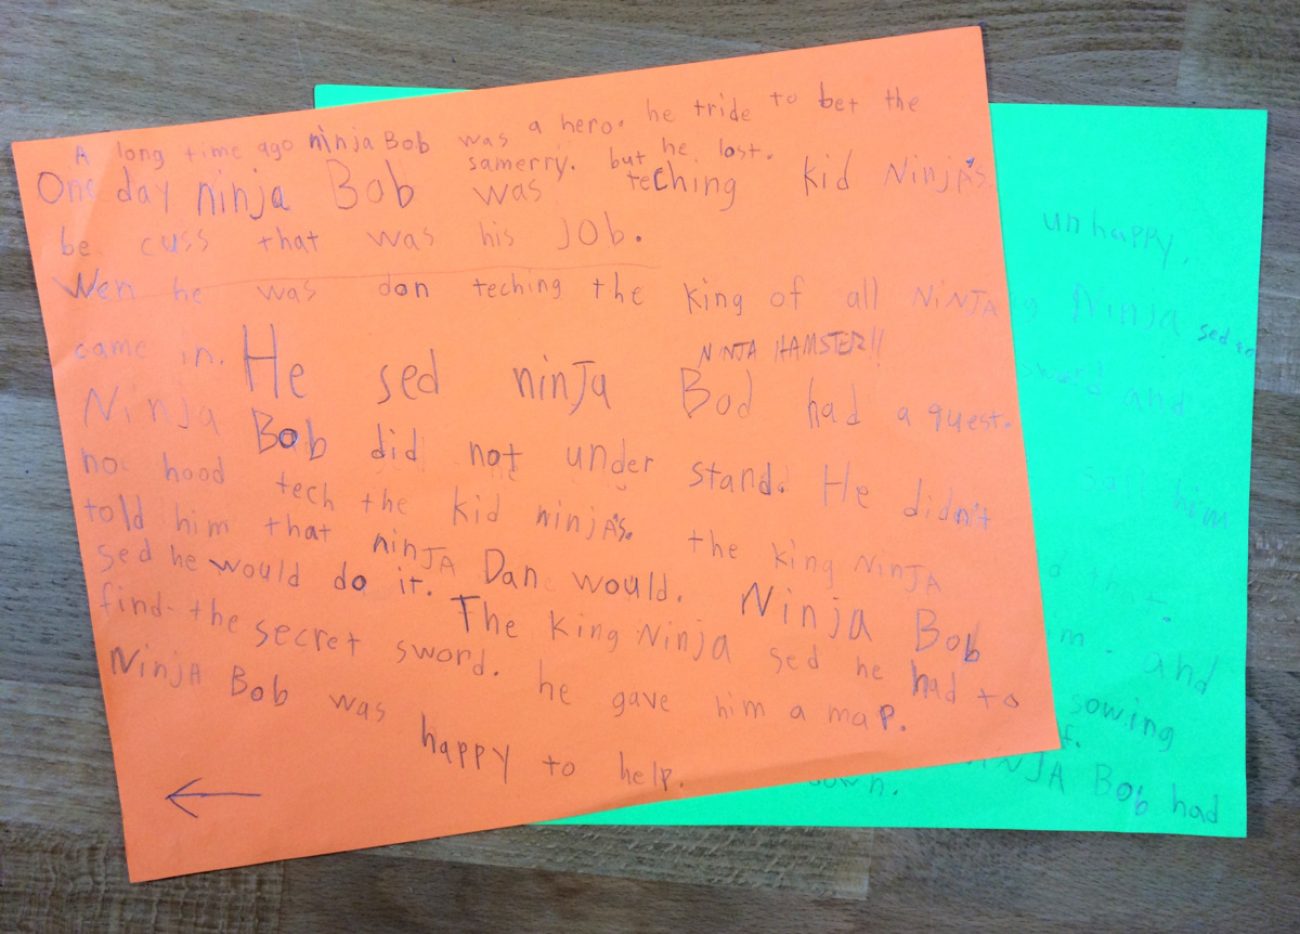 A long time ago ninja Bob was a hero. he tride to bet the
samerry. but he lost.
One day ninja Bob was teching kid Ninja's
be cuss that was his JOB.
Wen he was don teching the king of all NiNJA
came in. He sed ninja Bod had a quest.
NINJA HAMSTER!!
Ninja Bob did not under stand. He didn't
no hood tech the kid ninja's. the king NinJA
told him that ninJA Dan would. Ninja Bob
sed he would do it. The king Ninja sed he had to
find the secret sword. he gave him a map.
NinjA Bob was happy to help.
unhappy.
Ninja sed to
sword and
him
that.
and
sowing
NJA Bob had
down.